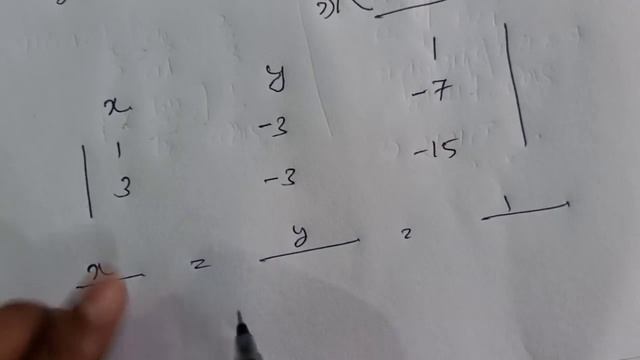 x y 1
1 -3 -7
3 -3 -15
x = y = 1